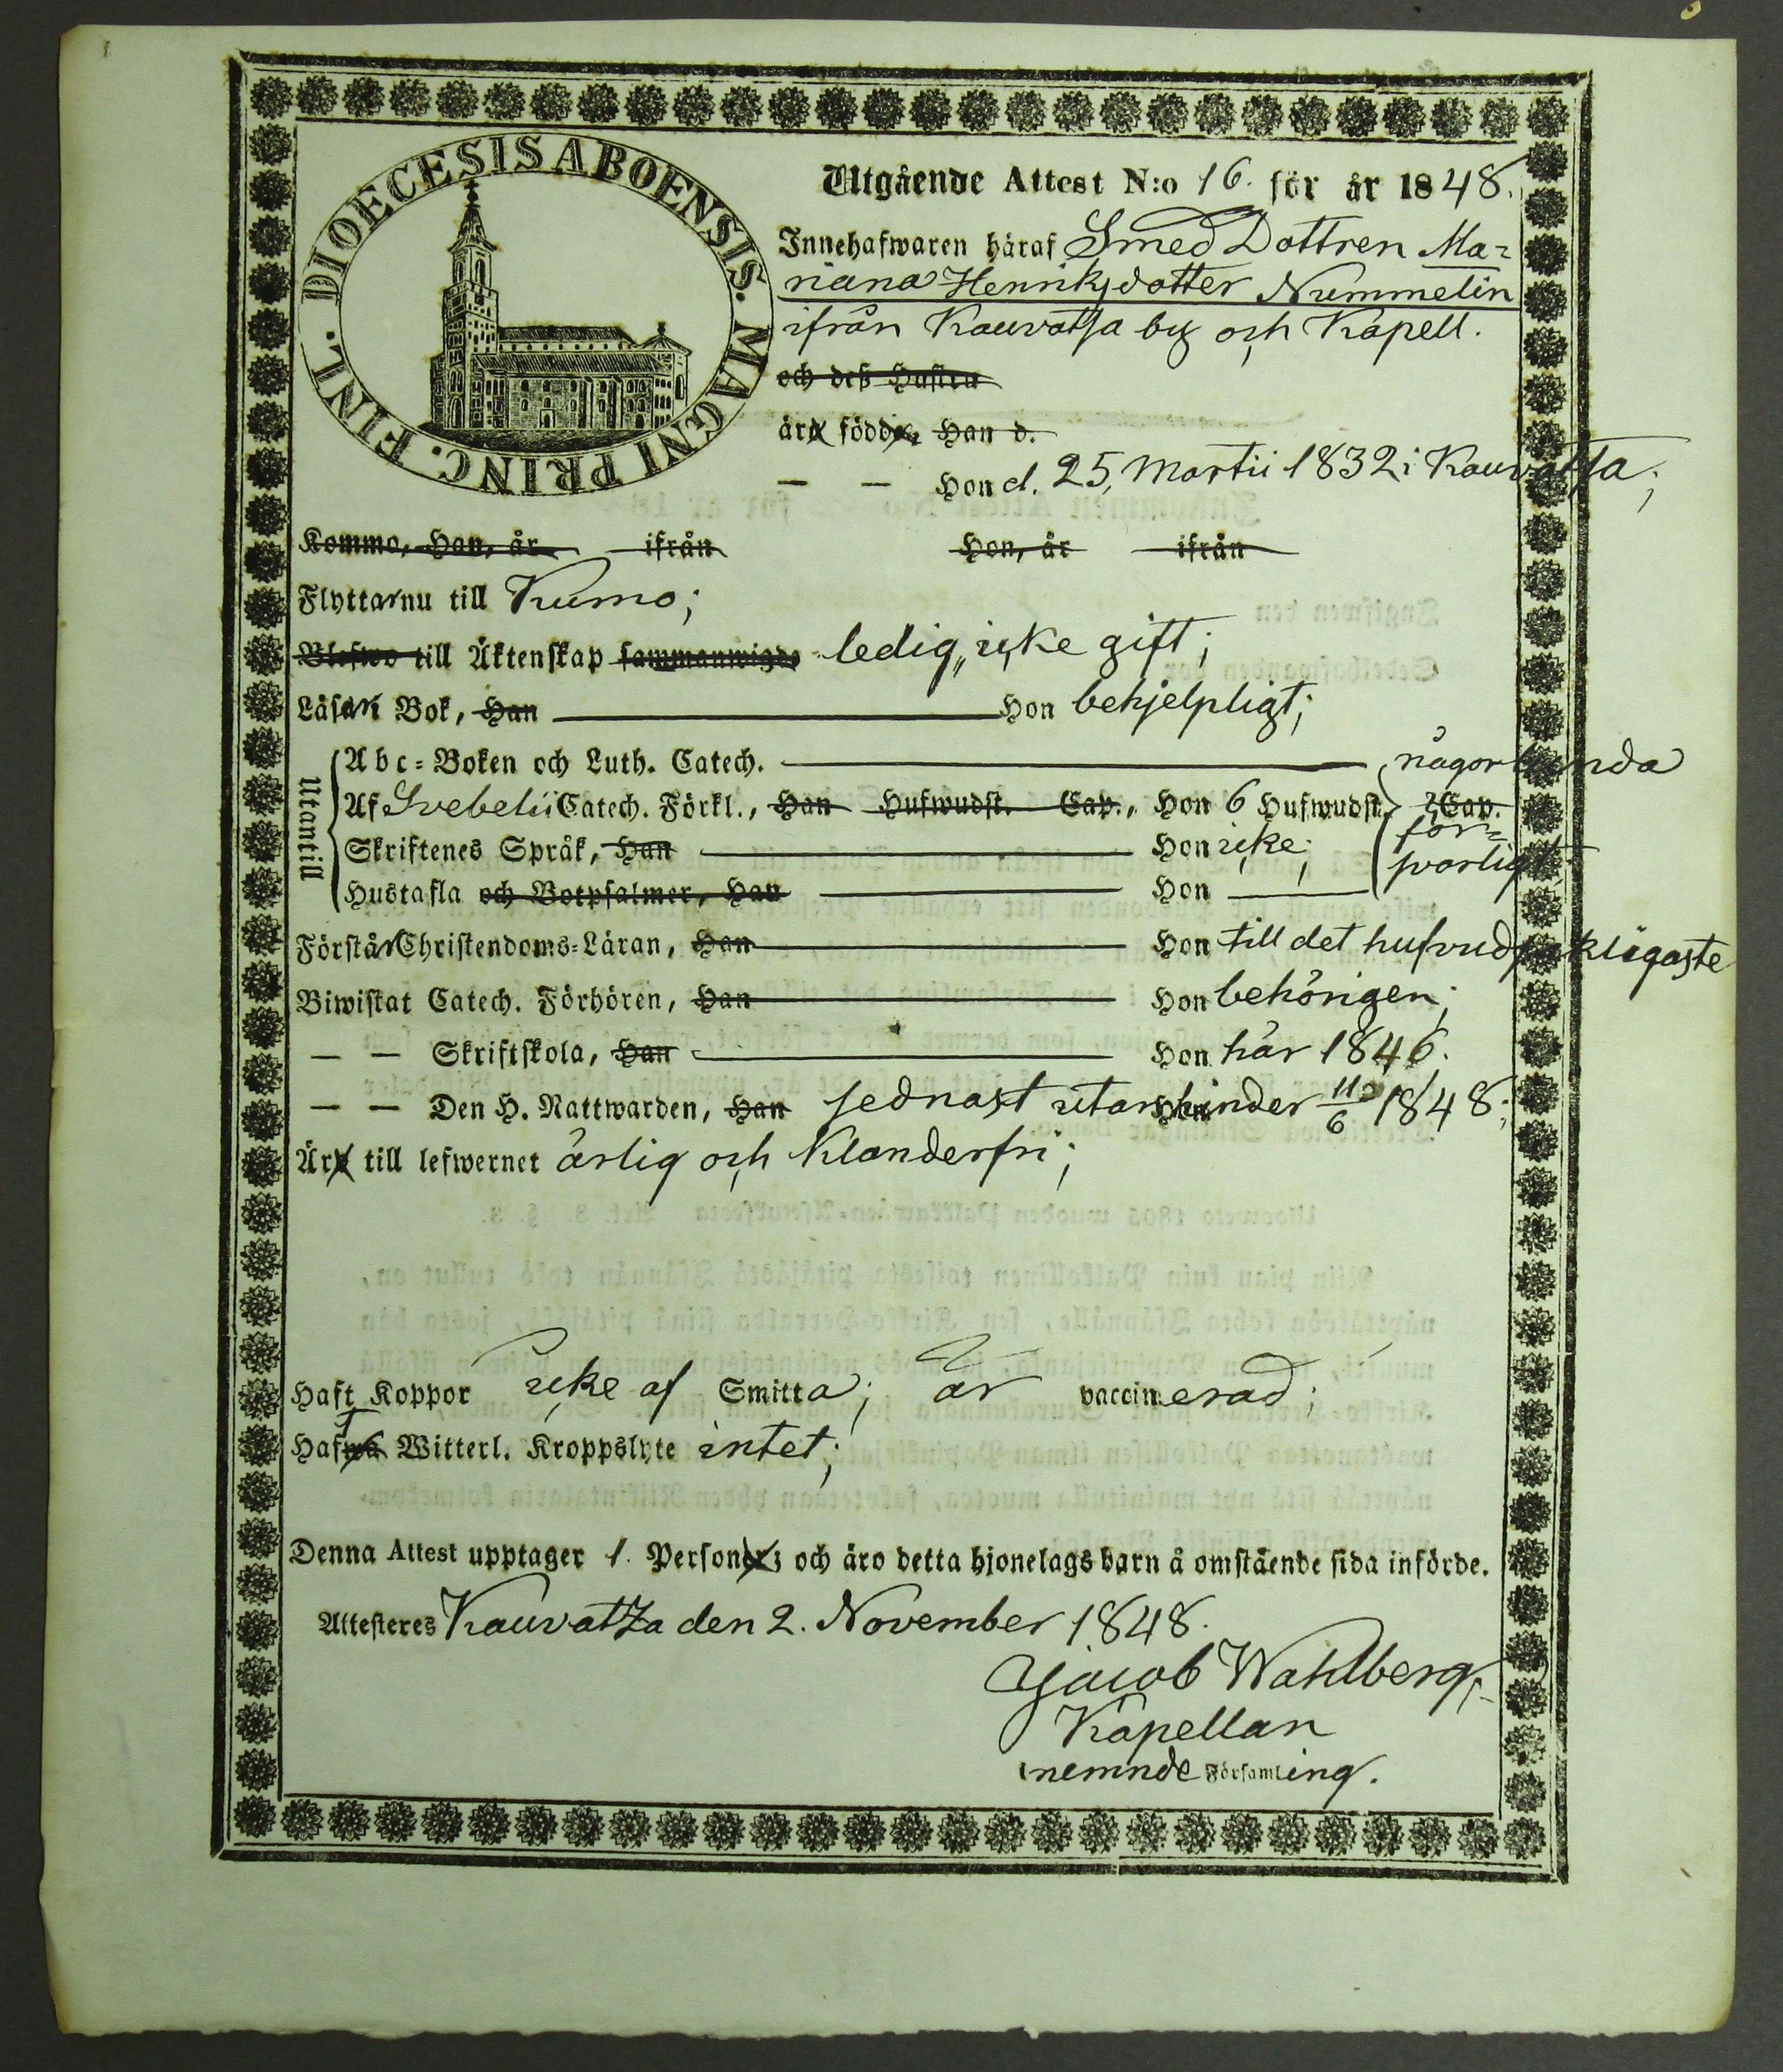 DIOECESIS ABOENSIS. MAGNI PRINC. FINL.
Utgående Attest N:o 16. för år 1848.
Innehafwaren häraf Smed Dottren Ma=
riana Henriksdotter Nummelin
ifrån Kauvatsa by och Kapell.
och deß Hustru
äro födde, Han d.
— — Hon d. 25, Martii 1832 i Kauvatsa;
Kommo, Han, år ifrån Hon, år ifrån
Flyttar nu till Kumo;
Blefwo till Äktenskap sammanwigde ledig, icke gift;
Läsa i Bok, Han Hon behjelpligt;
Utantill
Abc=Boken och Luth. Catech. någorlunda
Af Svebelii Catech. Förkl., Han Hufwudst. Cap., Hon 6 Hufwudst. 2 Cap.
för=
Skriftenes Språk, Han Hon icke;
svarligt
Hustafla och Botpsalmer, Han Hon
Förstår Christendoms=Läran, Han Hon till det hufvudsakligaste
Biwistat Catech. Förhören, Han Hon behörigen;
— — Skriftskola, Han Hon här 1846.
— — Den H. Nattwarden, Han sednast utan hinder 11/6 1848;
Är till lefwernet ärlig och klanderfri;
Haft Koppor icke af Smitta; är vaccinerad;
Haft Witterl. Kroppslyte intet;
Denna Attest upptager 1. Personer; och äro detta hjonelags barn å omstående sida införde.
Attesteres Kauvatsa den 2. November 1848.
Jacob Wahlberg,
Kapellan
i nemnde Församling.